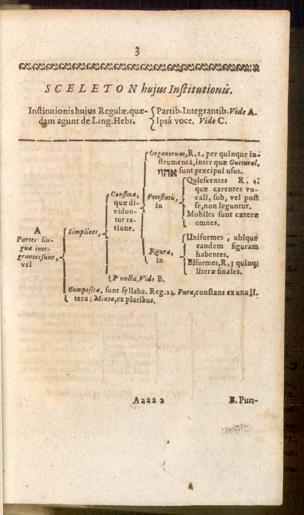 3
SCELETON hujus Institutionis.
Institutionis hujus Regulæ, quæ-
dam agunt de Ling. Hebr.
Partib. Integrantib. Vide A.
Ipsâ voce. Vide C.
A
Partes lin-
guæ inte-
grantes sunt,
vel
Simplices,
Consonæ,
quæ di-
vidun-
tur ra-
tione,
Organorum, R. 1. per quinque in-
strumenta, inter quæ Guttural.
אהחע sunt præcipui usus.
Potestatis,
in
Quiescentes R. 2.
quæ carentes vo-
cali, sub, vel post
se, non leguntur.
Mobiles sunt cæteræ
omnes.
Figuræ,
in
Uniformes, ubique
eandem figuram
habentes,
Biformes, R. 3 quinq;
literæ finales.
Puncta, Vide B.
Compositæ, sunt syllaba. Reg. 23. Pura, constans ex una li-
tera; Mixta, ex pluribus.
Aaaa 2
B. Pun-